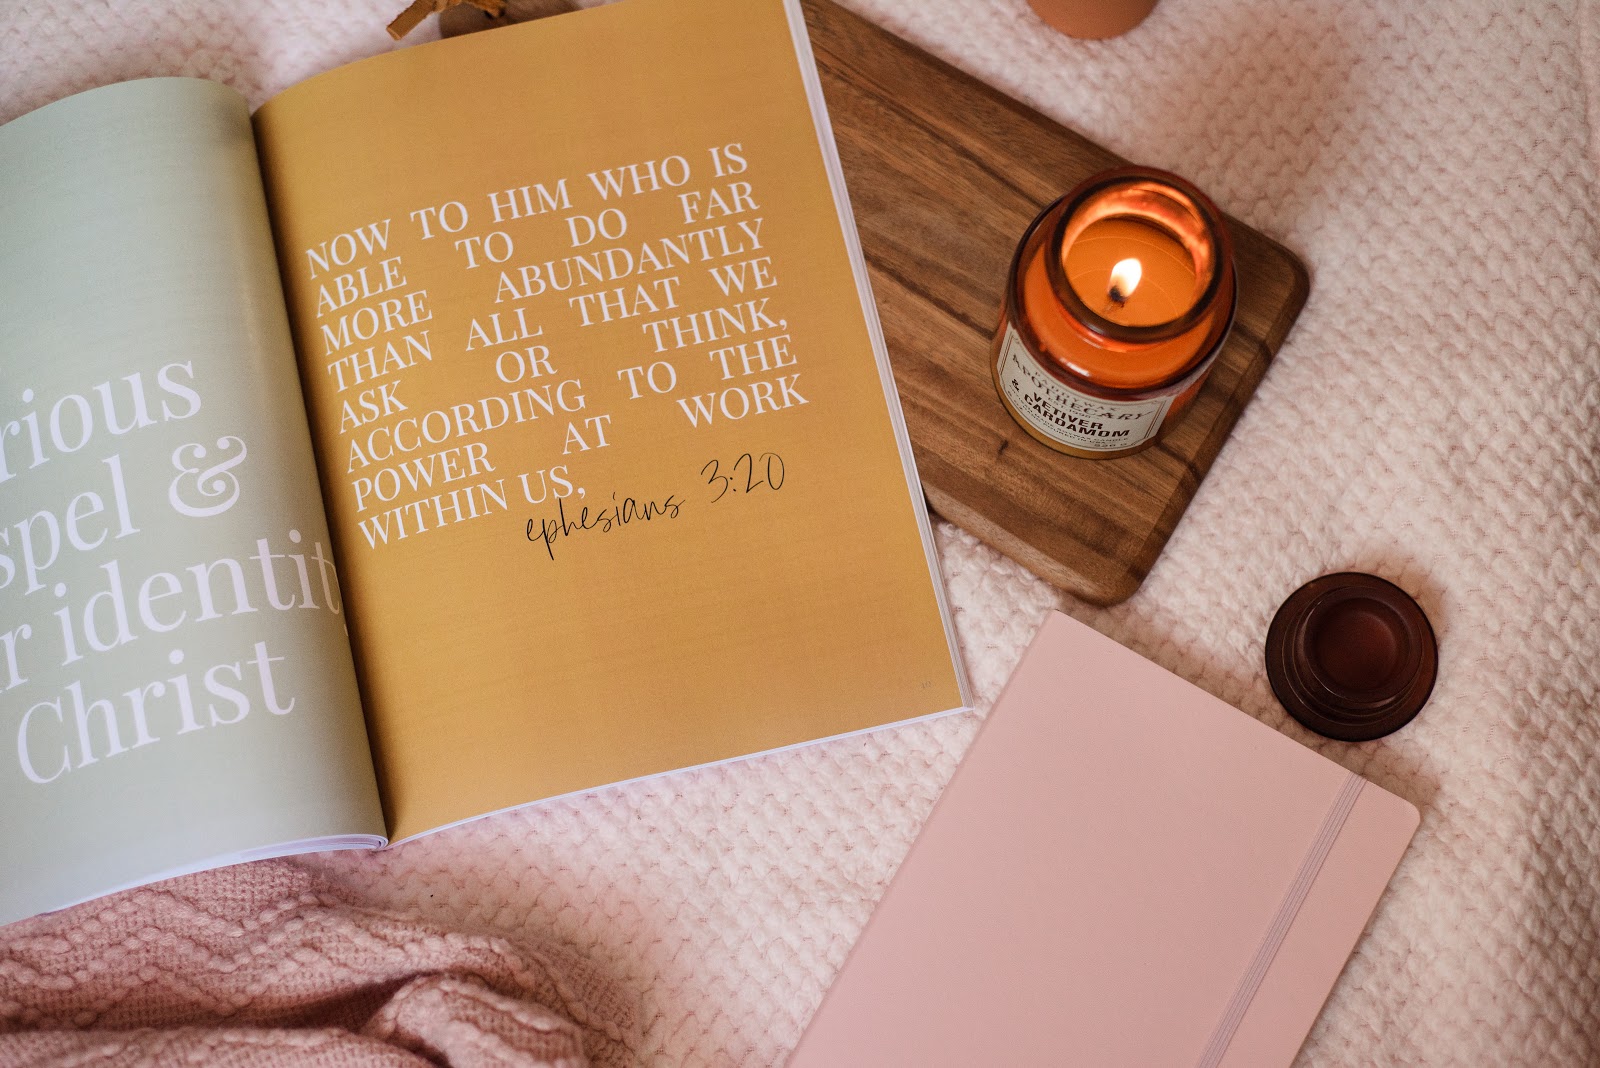 rious
spel &
r identit
Christ
NOW TO HIM WHO IS
ABLE TO DO FAR
MORE ABUNDANTLY
THAN ALL THAT WE
ASK OR THINK,
ACCORDING TO THE
POWER AT WORK
WITHIN US,
ephesians 3:20
APOTHECARY
VETIVER
& CARDAMOM